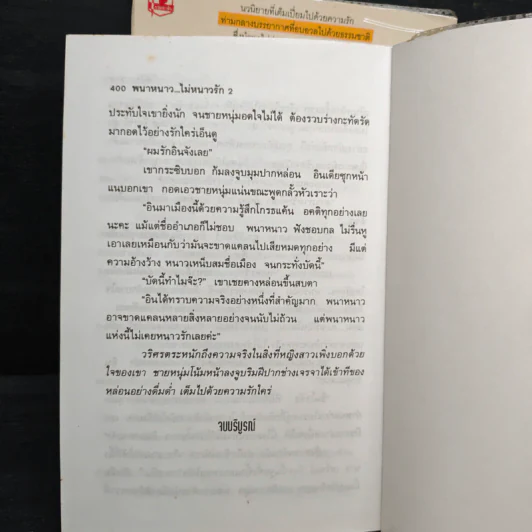 นวนิยายที่เต็มเปี่ยมไปด้วยความรัก
ท่ามกลางบรรยากาศที่อบอวลไปด้วยธรรมชาติ
400 พนาหนาว...ไม่หนาวรัก 2
ประทับใจเขายิ่งนัก จนชายหนุ่มอดใจไม่ได้ ต้องรวบร่างกะทัดรัด
มากอดไว้อย่างรักใคร่เอ็นดู
"ผมรักอินจังเลย"
เขากระซิบบอก ก้มลงจูบมุมปากหล่อน อินเดียซุกหน้า
แนบอกเขา กอดเอวชายหนุ่มแน่นขณะพูดกลั้วหัวเราะว่า
"อินมาเมืองนี้ด้วยความรู้สึกโกรธแค้น อคติทุกอย่างเลย
นะคะ แม้แต่ชื่ออำเภอก็ไม่ชอบ พนาหนาว ฟังชอบกล ไม่รื่นหู
เอาเลยเหมือนกับว่ามันจะขาดแคลนไปเสียหมดทุกอย่าง มีแต่
ความอ้างว้าง หนาวเหน็บสมชื่อเมือง จนกระทั่งบัดนี้"
"บัดนี้ทำไมจ๊ะ?" เขาเชยคางหล่อนขึ้นสบตา
"อินได้ทราบความจริงอย่างหนึ่งที่สำคัญมาก พนาหนาว
อาจขาดแคลนหลายสิ่งหลายอย่างจนนับไม่ถ้วน แต่พนาหนาว
แห่งนี้ไม่เคยหนาวรักเลยค่ะ"
วริศรตระหนักถึงความจริงในสิ่งที่หญิงสาวเพิ่งบอกด้วย
ใจของเขา ชายหนุ่มโน้มหน้าลงจูบริมฝีปากช่างเจรจาได้เข้าทีของ
หล่อนอย่างดื่มด่ำ เต็มไปด้วยความรักใคร่
จบบริบูรณ์